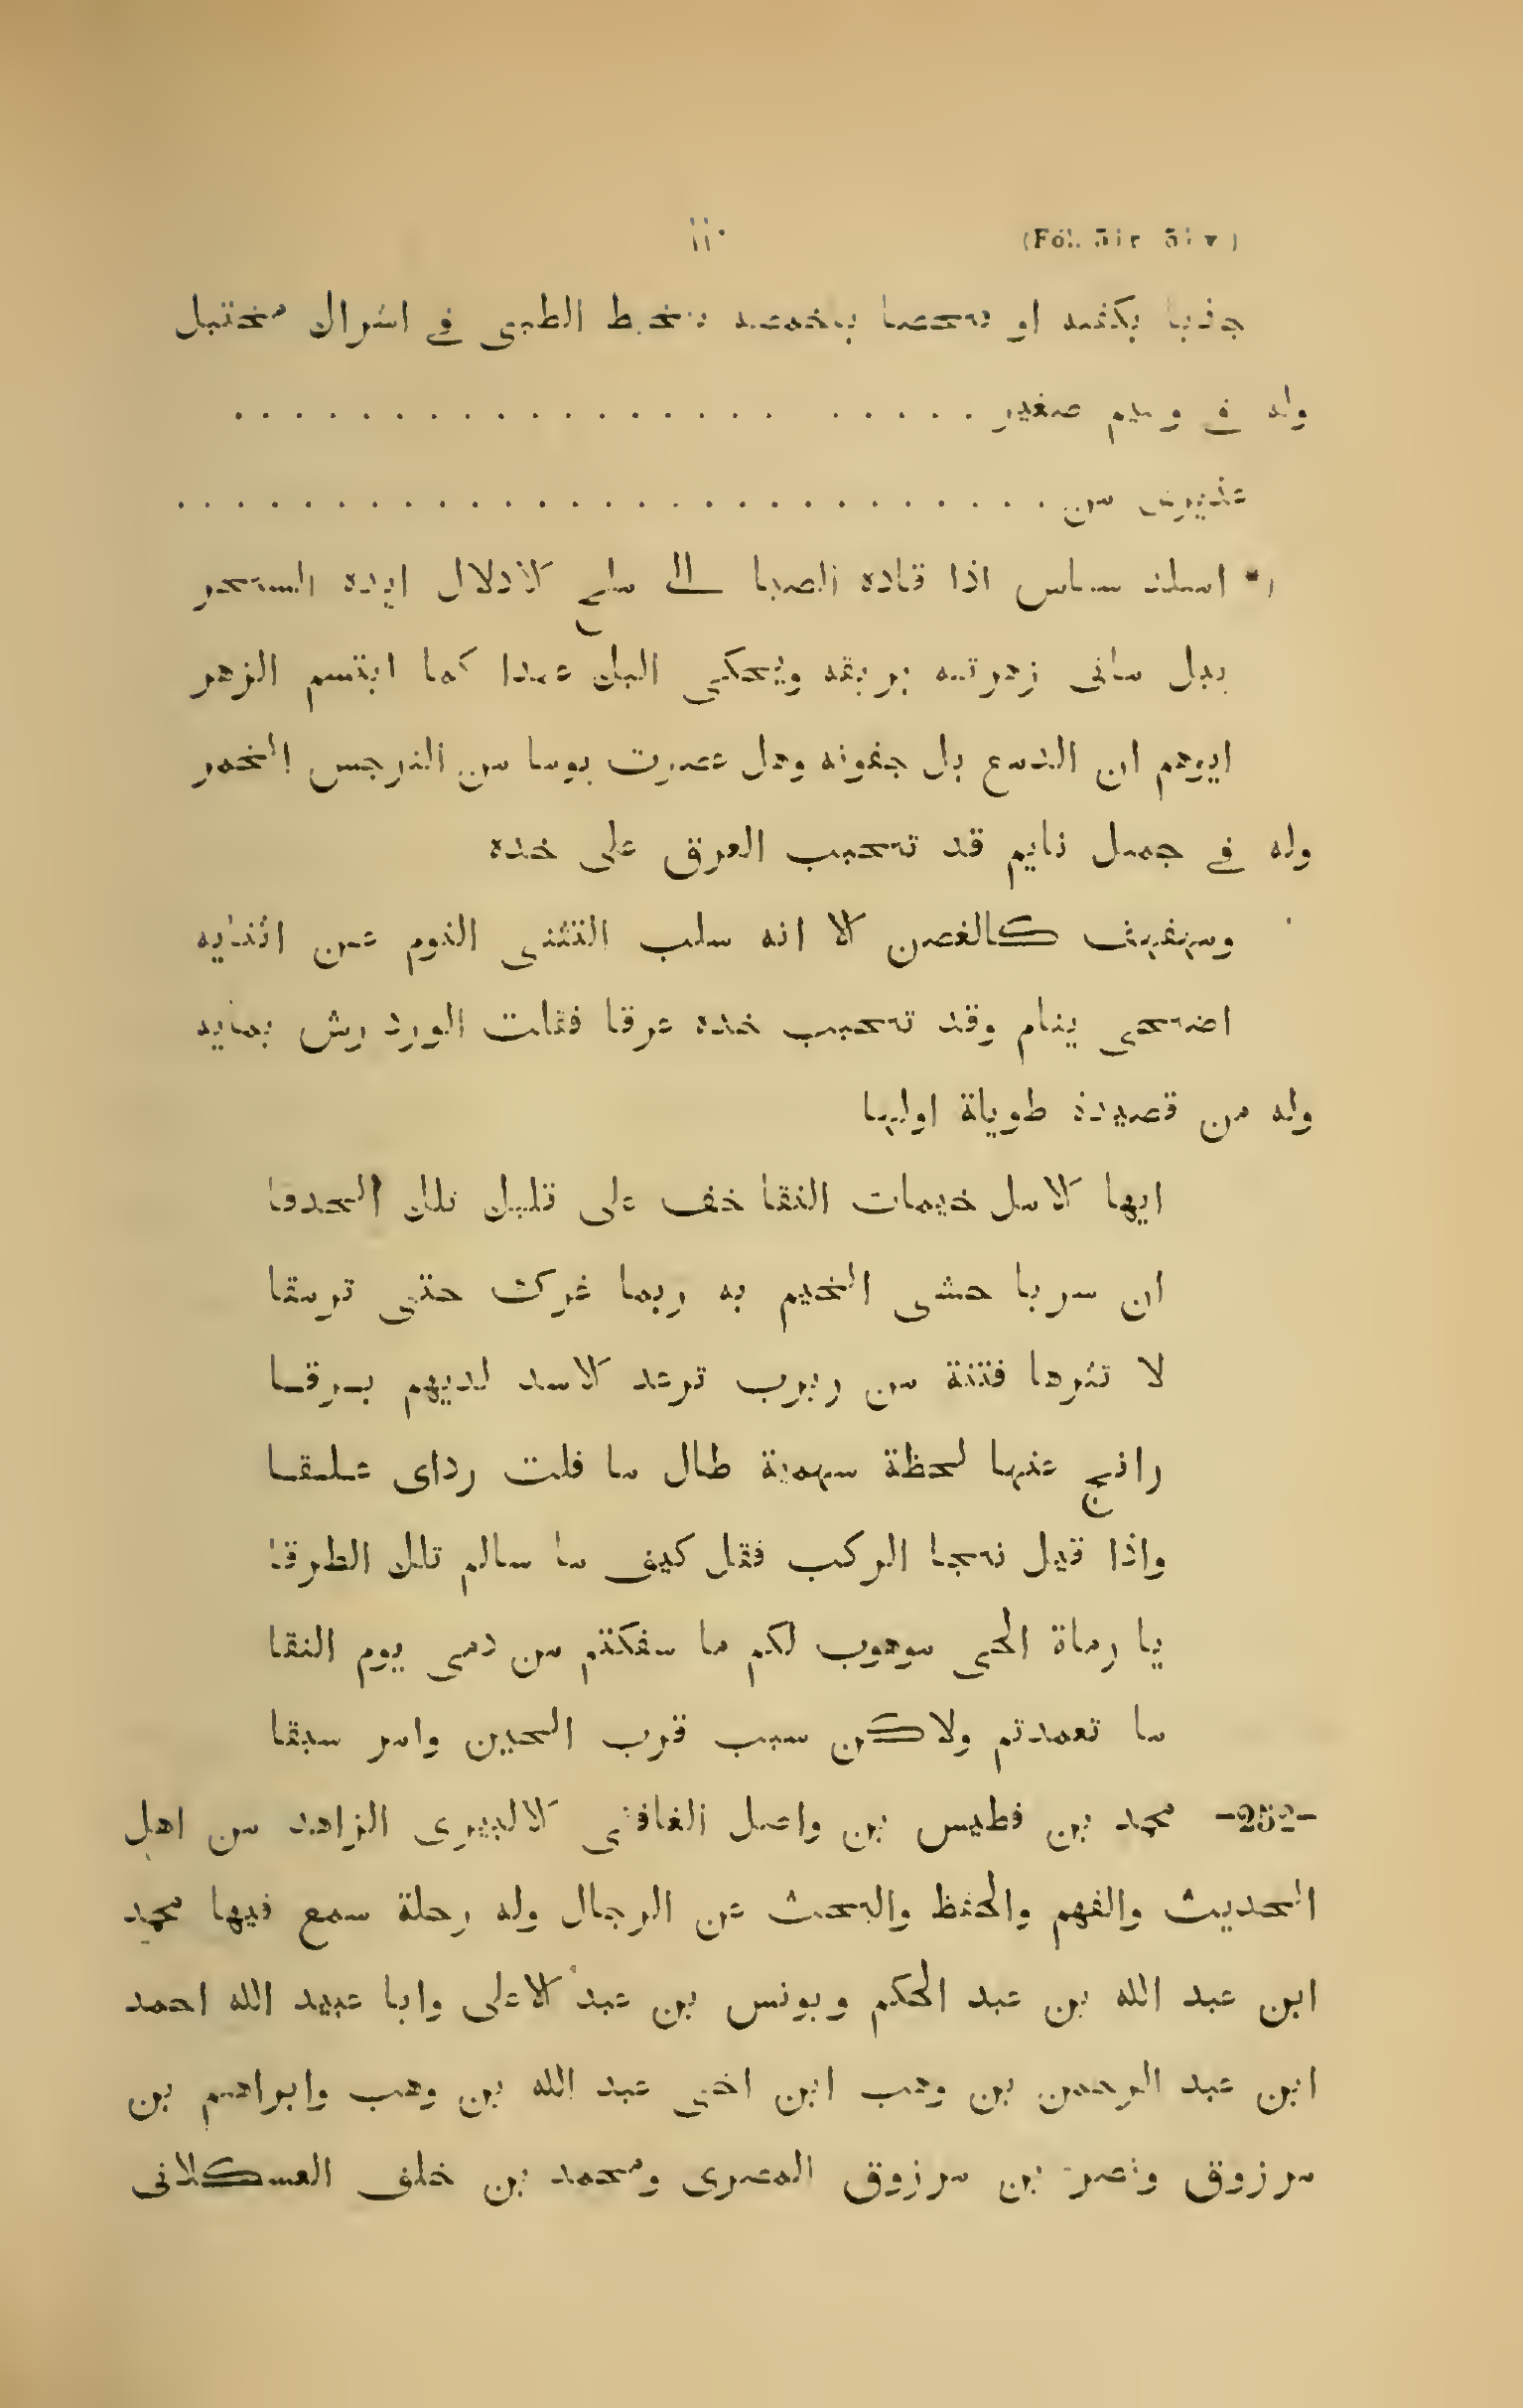 ١١٠
بكفيه او في اشراك مختبل
وله في وسيم صغير . . . . . . . . . . . . . . . . . . . . . .
من . . . . . . . . . . . . . . . . . . . . . . . . . . .
اذا قاده الصبا الى ملح الادلال ايده السحر
زهرتيه بريقه ويحكى البكا عمدا كما ابتسم الزهر
ايوهم ان الدمع بل جفونه وهل عصرت يوما من النرجس الخمر
وله في جميل نايم قد تحبب العرق على خده
ومهفهف كالغصن الا انه سلب التثنى النوم عن اثنايه
اضحى ينام وقد تحبب خده عرقا فقلت الورد رش بمايه
وله من قصيدة طويلة اولها
ايها الامل خيمات النقا خف على قلبك تلك الحدقا
ان سربا حشى الخيم به ربما غرك حتى ترمقا
لا تثرها فتنة من ربرب ترعد الاسد لديهم فرقا
وانج عنها لحظة سهمية طال ما فلت رداى علقا
واذا قيل نجا الركب فقل كيف ما سالم تلك الطرقا
يا رماة الحى موهوب لكم ما سفكتم من دمى يوم النقا
ما تعمدتم ولاكن سبب قرب الحين وامر سبقا
-252- محمد بن فطيس بن واصل الغافقى الالبيرى الزاهد من اهل
الحديث والفهم والحفظ والبحث عن الرجال وله رحلة سمع فيها محمد
ابن عبد الله بن عبد الحكم ويونس بن عبد الاعلى وابا عبيد الله احمد
ابن عبد الرحمن بن وهب ابن اخى عبد الله بن وهب وابراهيم بن
مرزوق ونصر بن مرزوق المصرى ومحمد بن خلف العسكلانى